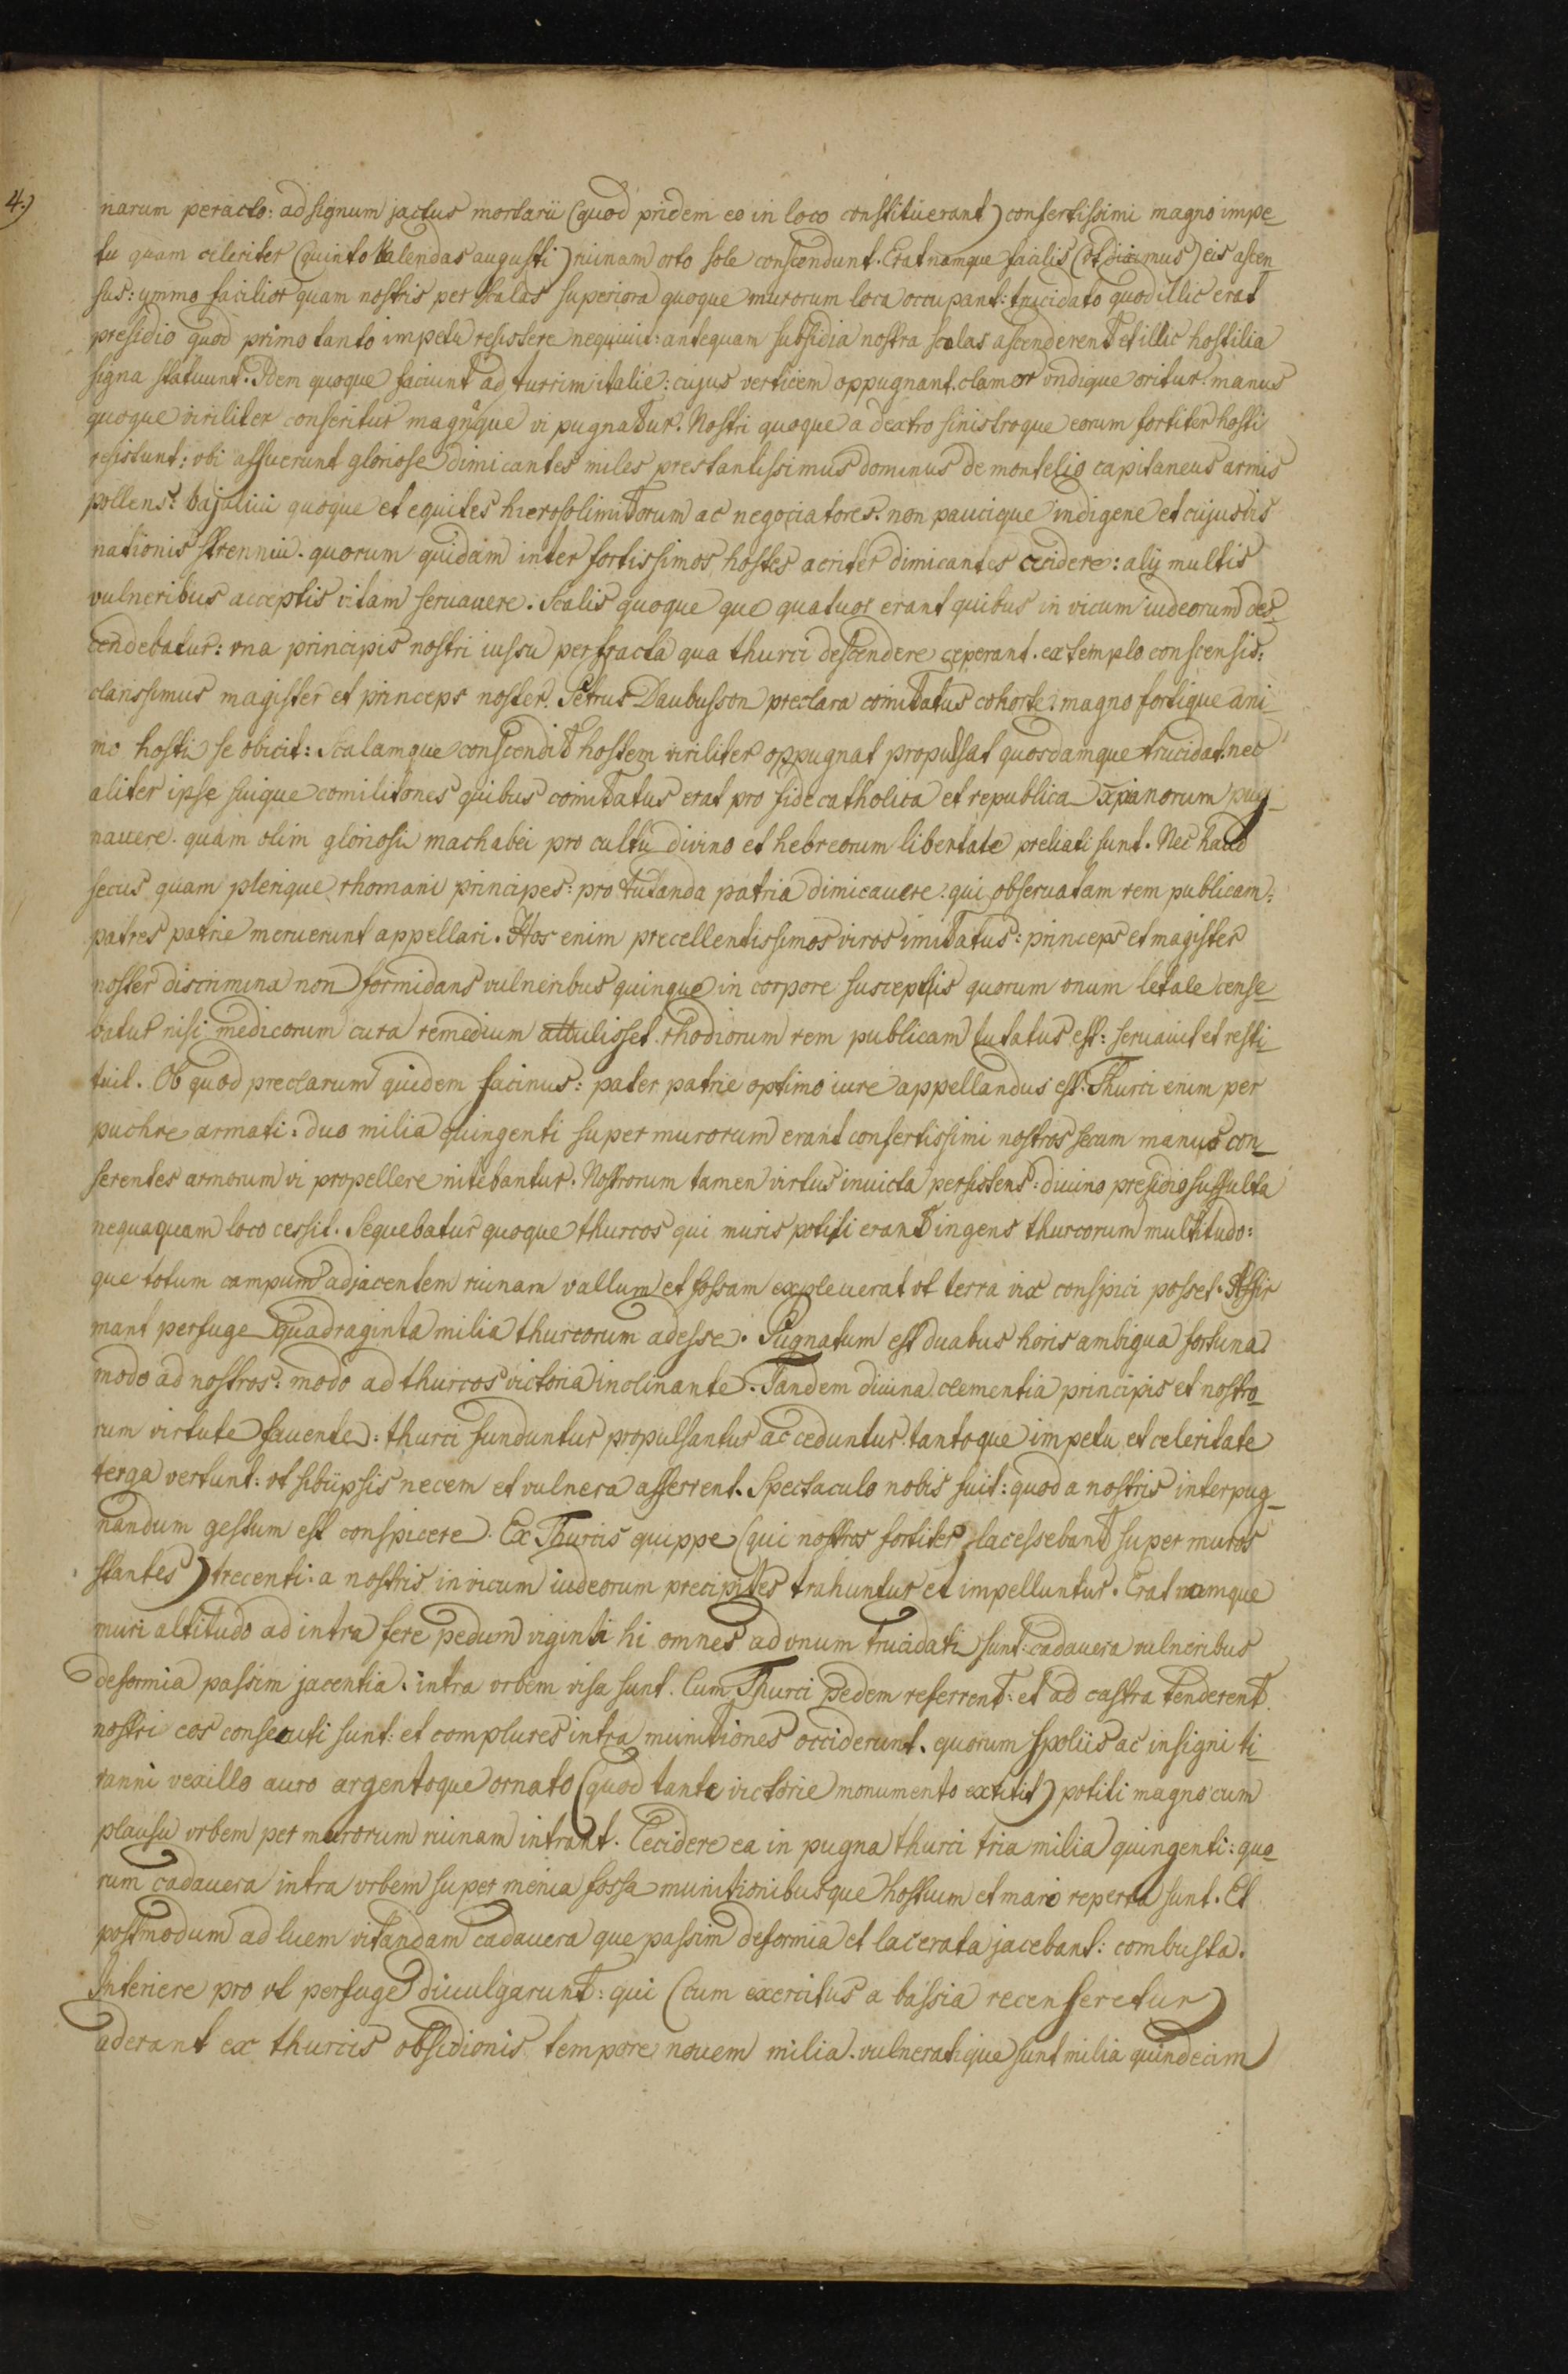 4.)
narum peracto: ad signum jactus mortarii (quod pridem eo in loco constituerant) confertissimi magno impe-
tu quam celeriter (quinto Kalendas augusti) ruinam orto sole conscendunt. Erat namque facilis (ut diximus) eis ascen
sus: ymmo facilior quam nostris per scalas superiora quoque murorum loca occupant: trucidato quod illic erat
presidio quod primo tanto impetu resistere nequiuit: antequam subsidia nostra scalas ascenderent et illic hostilia
signa statuunt. Idem quoque faciunt ad turrim italie: cujus verticem oppugnant. clamor undique oritur. manus
quoque viriliter conseritur magnaque vi pugnatur. Nostri quoque a dextro sinistroque eorum fortiter hosti
resistunt: vbi affuerunt gloriose dimicantes miles prestantissimus dominus de montelio capitaneus armis
pollens: bajaliui quoque et equites hierosolimitorum ac negociatores. non paucique indigene et cujusvis
nationis strennui. quorum quidam inter fortissimos hostes acriter dimicantes cecidere: alij multis
vulneribus acceptis vitam seruauere. Scalis quoque que quatuor erant quibus in vicum iudeorum des-
cendebatur: vna principis nostri iussu perfracta qua thurci descendere ceperant. extemplo conscensis:
clarissimus magister et princeps noster Petrus Daubusson preclara comitatus cohorte: magno fortique ani
mo hosti se obicit: Scalamque conscendit hostem viriliter oppugnat propulsat quosdamque trucidat. nec
aliter ipse suique comilitones quibus comitatus erat pro fide catholica et republica xpianorum pug-
nauere. quam olim gloriosi machabei pro cultu divino et hebreorum libertate preliati sunt. Nec haud
secus quam plerique rhomani principes: pro tutanda patria dimicauere: qui obseruatam rem publicam:
patres patrie meruerunt appellari. Hos enim precellentissimos viros imitatus: princeps et magister
noster discrimina non formidans vulneribus quinque in corpore susceptis quorum onum letale cense-
batur nisi medicorum cura remedium attulisset rhodiorum rem publicam tutatus est: seruauit et resti-
tuit. Ob quod preclarum quidem facinus: pater patrie optimo iure appellandus est. Thurci enim per
puchre armati: duo milia quingenti super murorum erant confertissimi nostros secum manus con-
serentes armorum vi propellere nitebantur. Nostrorum tamen virtus inuicta persistens: diuino presidio suffulta
nequaquam loco cessit. Sequebatur quoque thurcos qui muris potiti erant ingens thurcorum multitudo:
que totum campum adjacentem ruinam vallum et fossam expleuerat vt terra vix conspici posset. Affir
mant perfuge quadraginta milia thurcorum adesse. Pugnatum est duabus horis ambigua fortuna
modo ad nostros: modo ad thurcos victoria inclinante. Tandem diuina clementia principis et nostro-
rum virtute fauente: thurci funduntur propulsantur ac ceduntur. tantoque impetu et celeritate
terga vertunt: vt sibiipsis necem et vulnera afferrent. Spectaculo nobis fuit: quod a nostris interpug-
nandum gestum est conspicere. Ex Thurcis quippe (qui nostros fortiter lacessebant super muros
stantes) trecenti: a nostris in vicum iudeorum precipites trahuntur et impelluntur. Erat namque
muri altitudo ad intra fere pedum viginti hi omnes ad vnum trucidati sunt: cadauera vulneribus
deformia passim jacentia: intra vrbem visa sunt. Cum Thurci pedem referrent: et ad castra tenderent
nostri eos consecuti sunt: et complures intra munitiones occiderunt. quorum spoliis ac insigni ti-
ranni vexillo auro argentoque ornato (quod tante victorie monumento extitit) potiti magno cum
plausu vrbem per murorum ruinam intrant. Cecidere ea in pugna thurci tria milia quingenti: quo-
rum cadauera intra vrbem super menia fossa munitionibusque hostium et mari reperta sunt. Et
postmodum ad luem vitandam cadauera que passim deformia et lacerata jacebant: combusta.
Interiere pro vt perfuge diuulgarunt: qui (cum exercitus a bassia recenseretur)
aderant ex thurcis obsidionis tempore nouem milia. vulneratique sunt milia quindecim